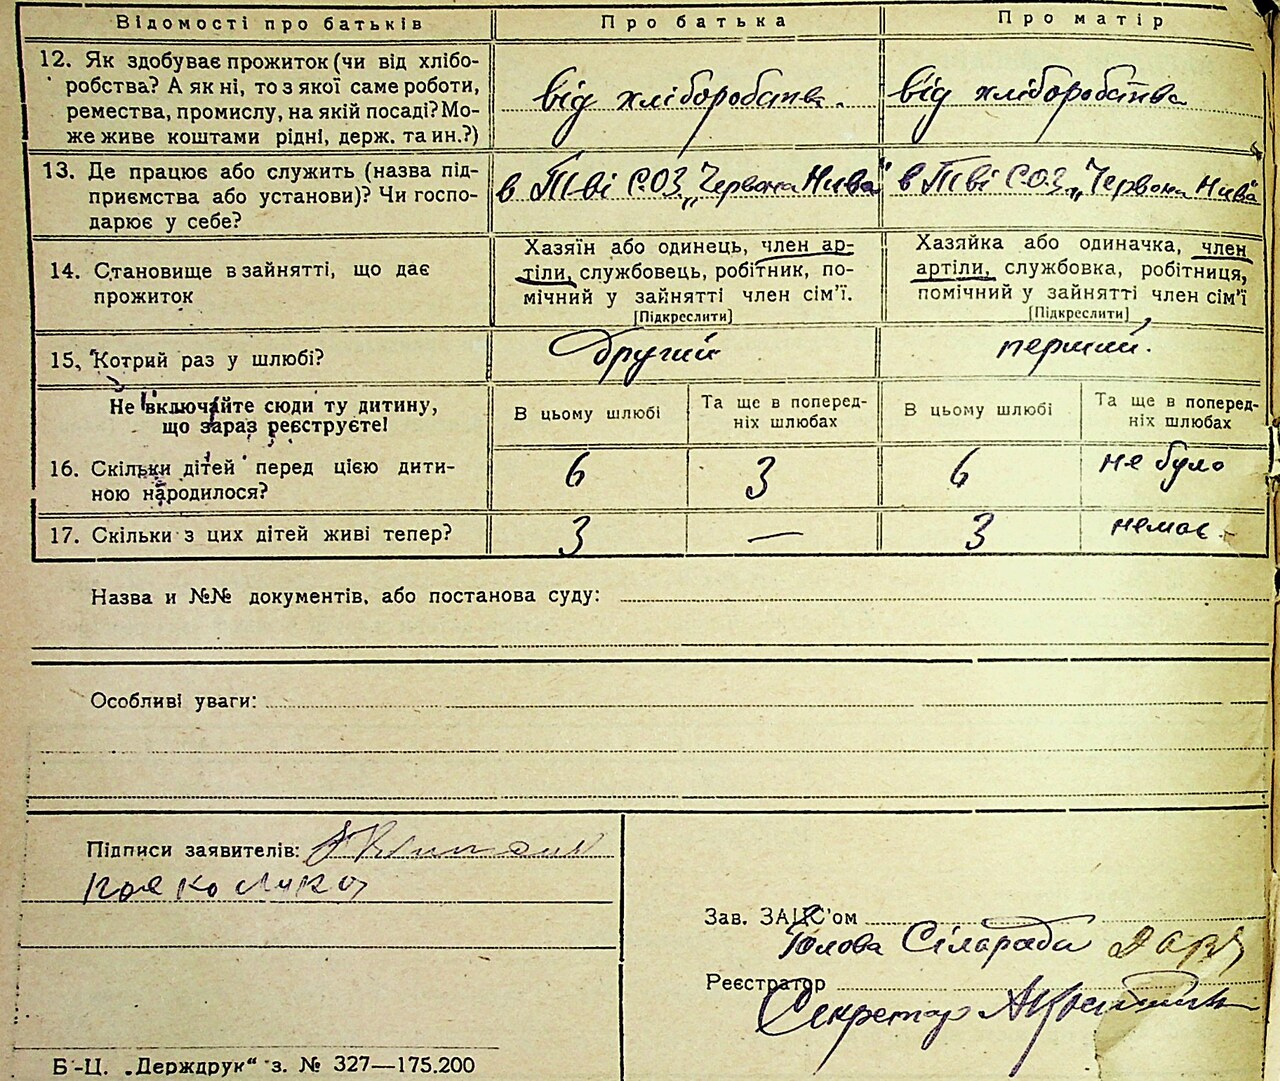 Відомості про батьків Про батька Про матір
12. Як здобуває прожиток (чи від хлібо-
робства? А як ні, то з якої саме роботи,
ремества, промислу, на якій посаді? Мо-
же живе коштами рідні, держ. та ин.?)
від хліборобства. від хліборобства
13. Де працює або служить (назва під-
приємства або установи)? Чи госпо-
дарює у себе?
в Т-ві С.О.З. „Червона Нива" в Т-ві С.О.З. „Червона Нива"
14. Становище в зайнятті, що дає
прожиток
Хазяїн або одинець, член ар-
тіли, службовець, робітник, по-
мічний у зайнятті член сім'ї.
[Підкреслити]
Хазяйка або одиначка, член
артіли, службовка, робітниця,
помічний у зайнятті член сім'ї
[Підкреслити]
15. Котрий раз у шлюбі? другий перший.
Не включайте сюди ту дитину,
що зараз реєструєте!
В цьому шлюбі
Та ще в поперед-
ніх шлюбах
В цьому шлюбі
Та ще в поперед-
ніх шлюбах
16. Скільки дітей перед цією дити-
ною народилося?
6 3 6 не було
17. Скільки з цих дітей живі тепер? 3 — 3 немає
Назва и №№ документів, або постанова суду:
Особливі уваги:
Підписи заявителів:
Зав. ЗАЦС'ом
Голова Сільради
Реєстратор
Секретар
Б-Ц. „Держдрук" з. № 327—175.200